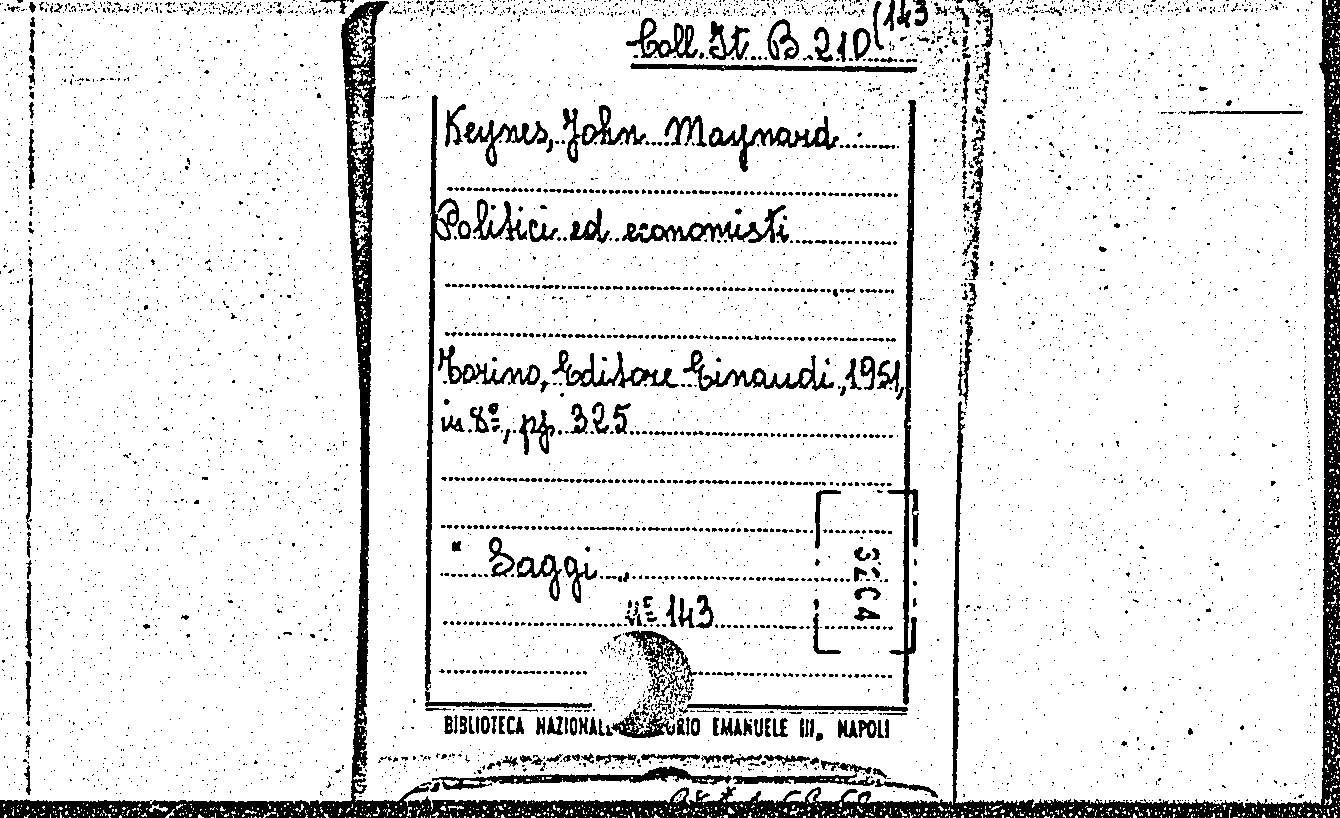 Coll. It. B. 210 (143
Keynes, John Maynard
Politici ed economisti
Torino, Editore Einaudi, 1951,
in 8º, pp. 325
" Saggi "
Nº 143
3204
BIBLIOTECA NAZIONALE EMANUELE III, NAPOLI